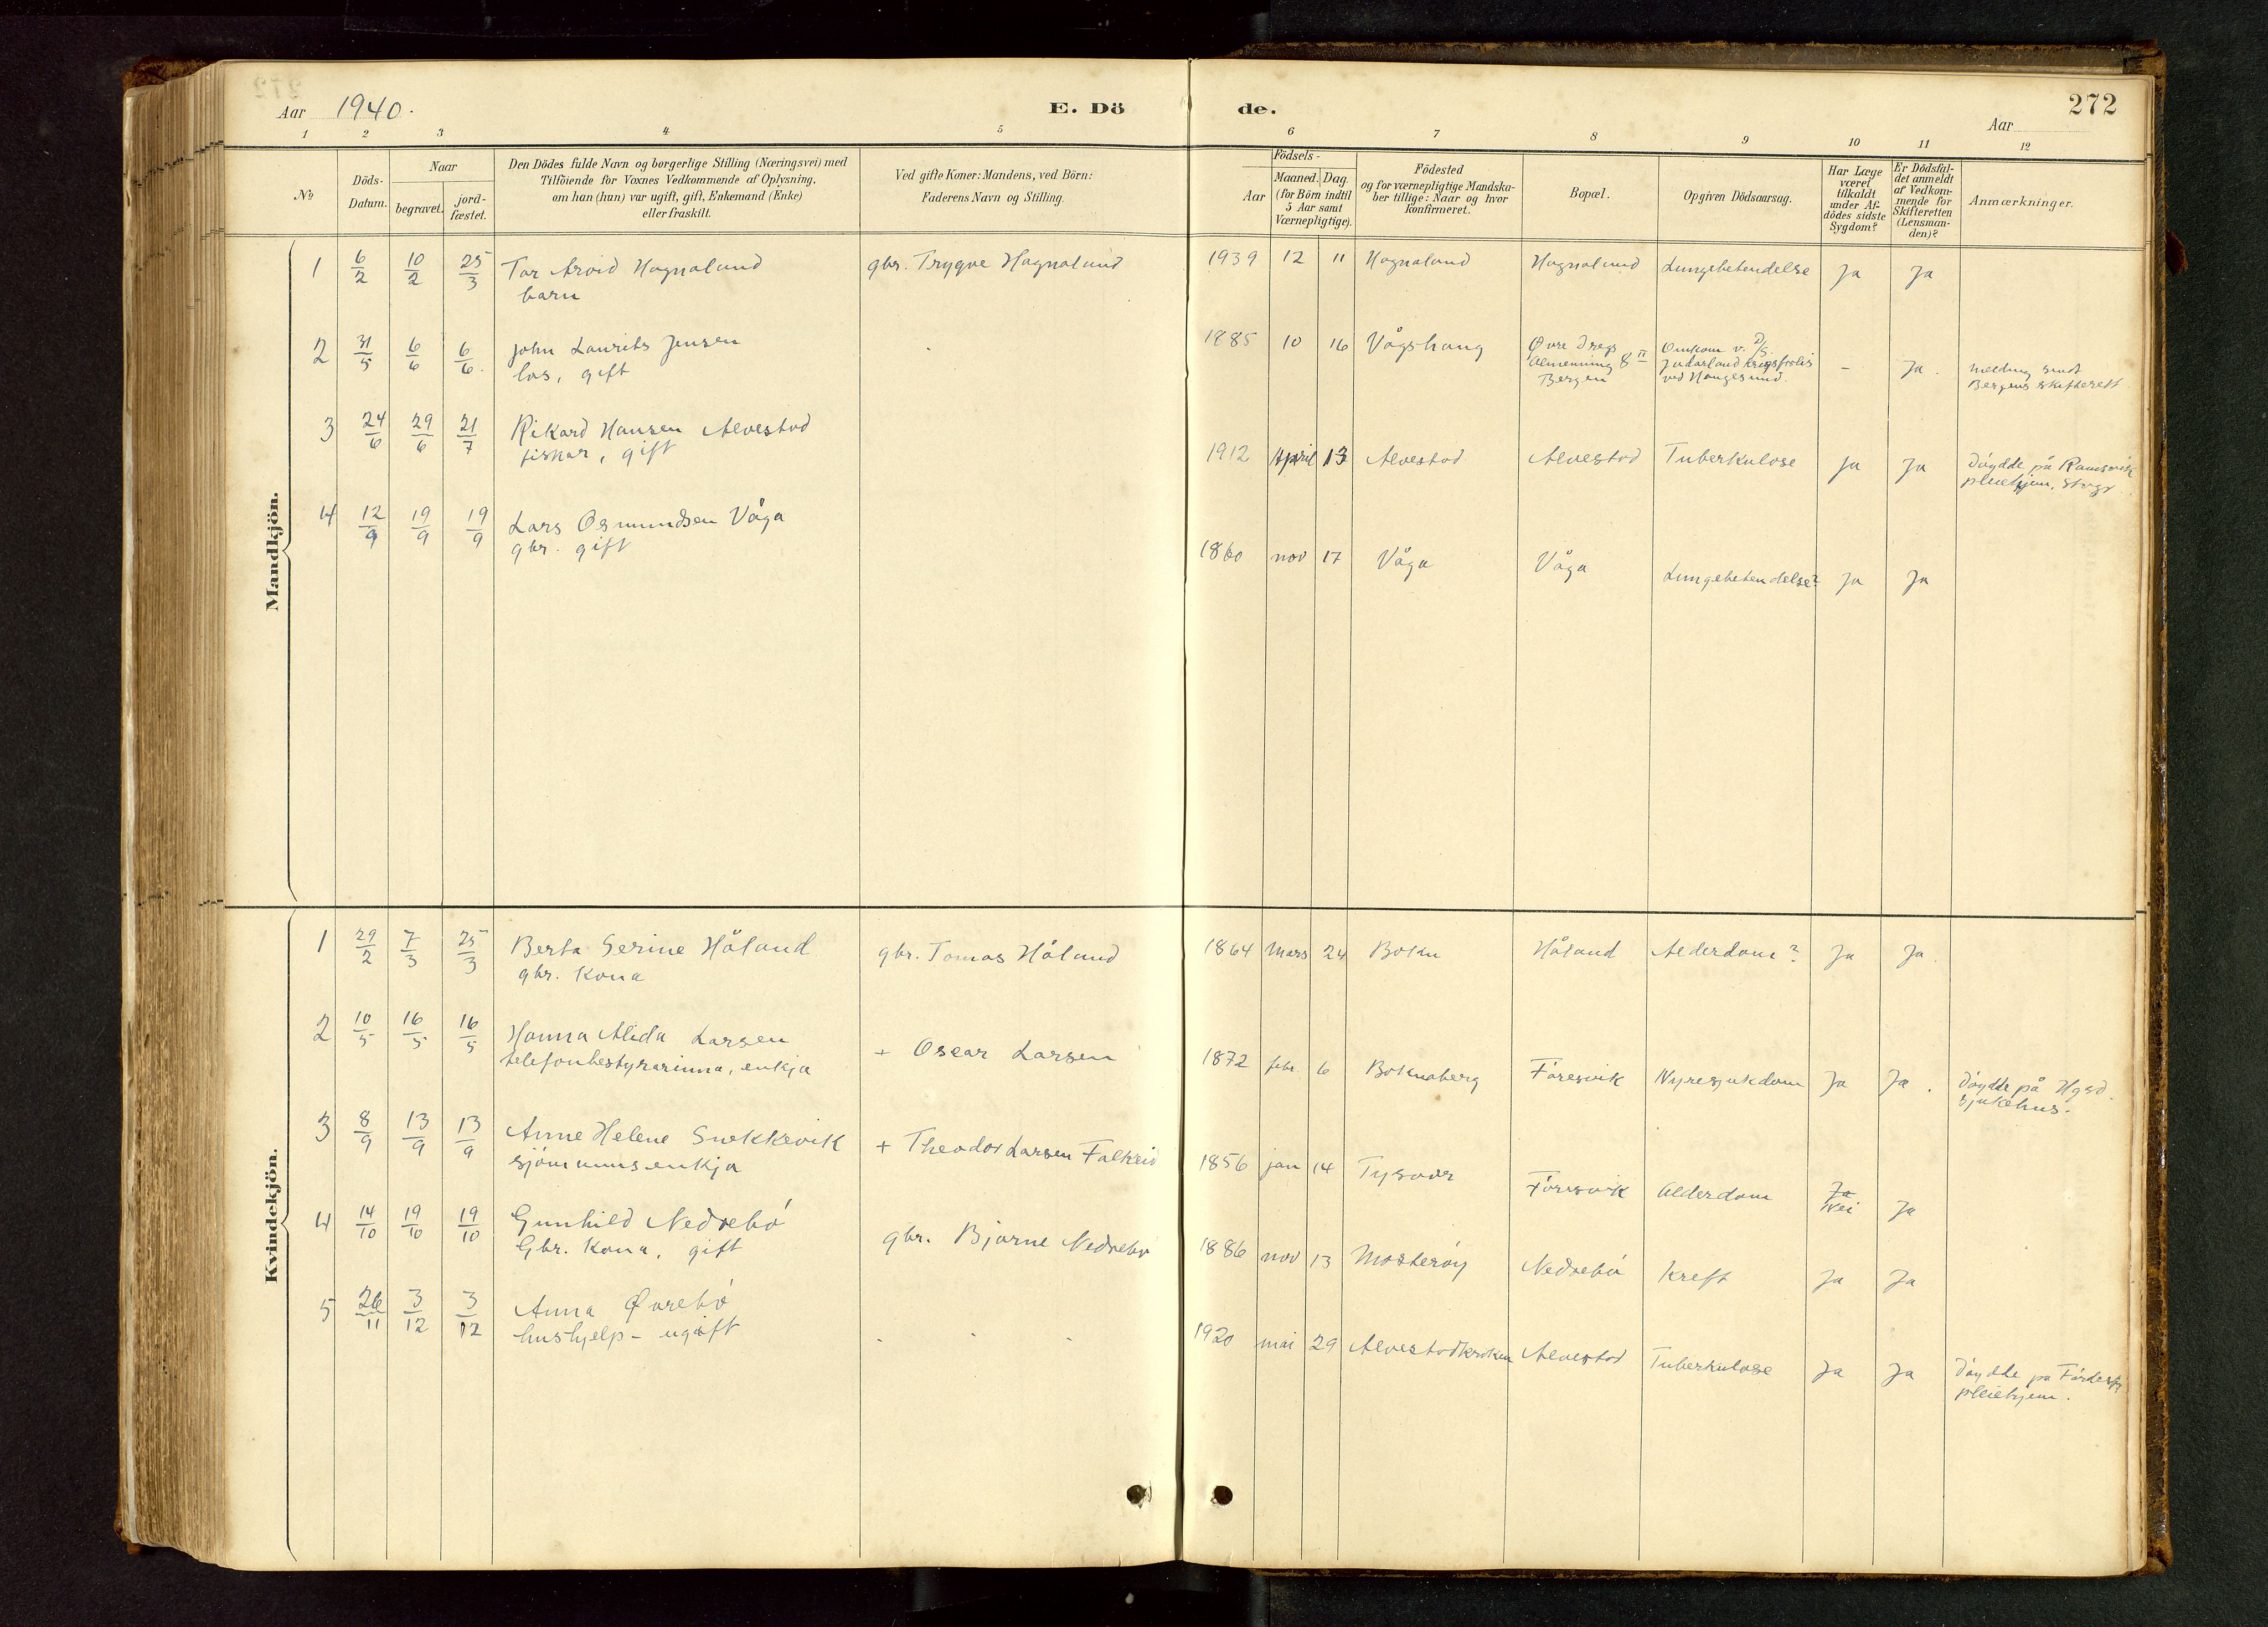 Aar 1940.
E. Dö
de.
Aar
272
1 2 3 4 5 6 7 8 9 10 11 12
No
Döds-
Datum.
Naar
begravet.
jord-
fæstet.
Den Dödes fulde Navn og borgerlige Stilling (Næringsvei) med
Tilföiende for Voxnes Vedkommende af Oplysning,
om han (hun) var ugift, gift, Enkemand (Enke)
eller fraskilt.
Ved gifte Koner: Mandens, ved Börn:
Faderens Navn og Stilling.
Födsels-
Aar
Maaned. Dag.
(for Börn indtil
5 Aar samt
Værnepligtige).
Födested
og for værnepligtige Mandska-
ber tillige: Naar og hvor
konfirmeret.
Bopæl.
Opgiven Dödsaarsag.
Har Læge
været
tilkaldt
under Af-
dödes sidste
Sygdom?
Er Dödsfal-
det anmeldt
af Vedkom-
mende for
Skifteretten
(Lensman-
den)?
Anmærkninger.
Mandkjön.
1 6/2 10/2 25/3 Tor Arvid Hognaland gbr. Trygve Hognaland 1939 12 11 Hognaland Hognaland Lungebetendelse Ja Ja
barn
2 31/5 6/6 6/6. John Laurits Jensen 1885 10 16 Vågshaug Øvre Dregs Omkom v. D/S
los, gift Almenning 8 II Jadarland krigsforlis - Ja. melding sendt
Bergen ved Haugesund. Bergens skifterett
3 24/6 29/6 21/7 Rikard Hansen Alvestad 1912 April 13 Alvestad Alvestad Tuberkulose Ja Ja Döydde på Ramsvik
fiskar, gift pleiehjem,
4 12/9 19/9 19/9 Lars Osmundsen Våga 1860 nov 17 Våga Våga Lungebetendelse? Ja Ja
gbr. gift
Kvindekjön.
1 29/2 7/3 25/3 Berta Serine Håland gbr. Tomas Håland 1864 Mars 24 Bokn Håland Alderdom? Ja Ja
gbr. Kona
2 10/5 16/5 16/5 Hanna Alida Larsen + Oscar Larsen 1872 febr. 6 Boknaberg Föresvik Nyresjukdom Ja Ja. Döydde på Hgsd.
telefonbestyrarinna, enkja sjukehus.
3 8/9 13/9 13/9 Anne Helene Snekkevik + Theodor Larsen Falkeid 1856 jan 14 Tysvær Föresvik Alderdom Ja Ja
sjömannsenkja Nei
4 14/10 19/10 19/10 Gunhild Nedrebö gbr. Bjarne Nedrebö 1886 nov 13 Mosteröy Nedrebö Kreft Ja Ja
Gbr. Kona, gift
5 26/11 3/12 3/12 Anna Øvrebö - - - 1920 mai 29 Alvestadkroken Alvestad Tuberkulose Ja Ja Döydde på
hushjelp - ugift pleiehjem.